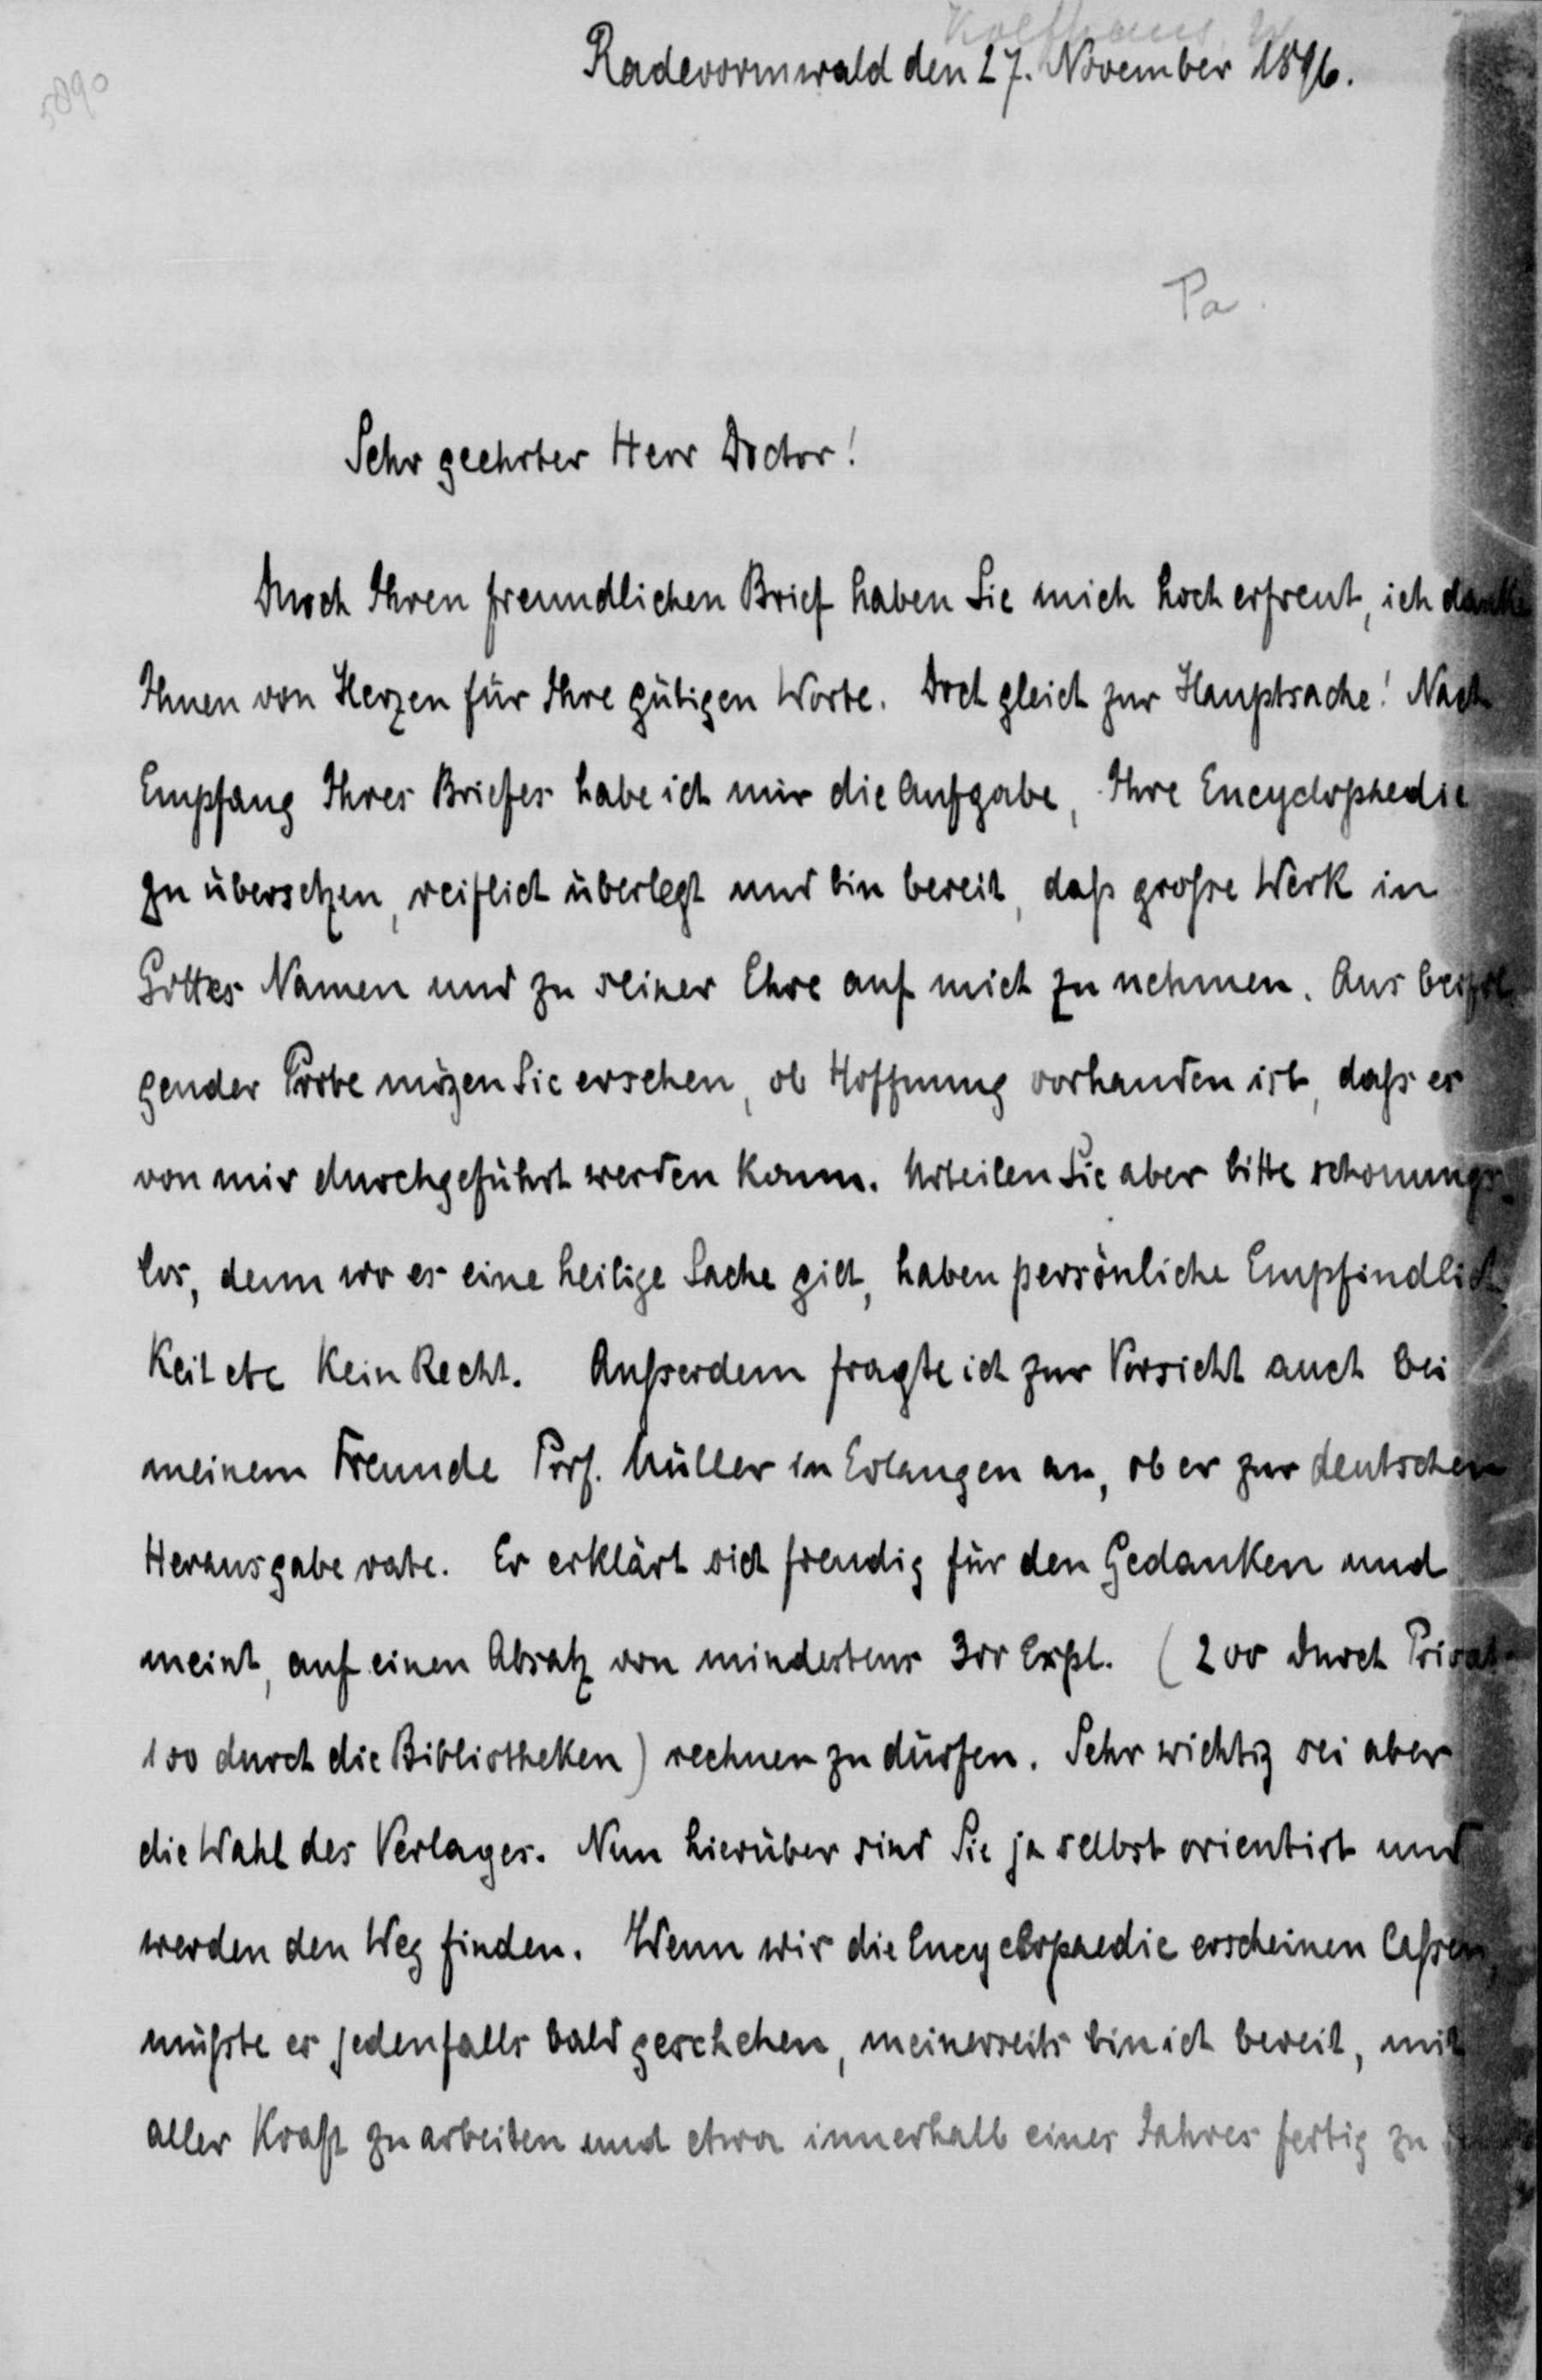 5890
Kolfhaus, W
Radevormwald den 27. November 1896.
Pa.
Sehr geehrter Herr Doctor!
Durch Ihren freundlichen Brief haben Sie mich hoch erfreut, ich danke
Ihnen von Herzen für Ihre gütigen Worte. Doch gleich zur Hauptsache! Nach
Empfang Ihres Briefes habe ich mir die Aufgabe, Ihre Encyclopaedie
zu übersetzen, reiflich überlegt und bin bereit, daß große Werk in
Gottes Namen und zu seiner Ehre auf mich zu nehmen. Aus beifol
gender Probe mögen Sie ersehen, ob Hoffnung vorhanden ist, daß es
von mir durchgeführt werden kann. Urteilen Sie aber bitte schonungs-
los, denn wo es eine heilige Sache gilt, haben persönliche Empfindlich
keit etc kein Recht. Außerdem fragte ich zur Vorsicht auch bei
meinem Freunde Prof. Müller in Erlangen an, ob er zur deutschen
Herausgabe rate. Er erklärt sich freudig für den Gedanken und
meint, auf einen Absatz von mindestens 300 Expl. (200 durch Privat-
100 durch die Bibliotheken) rechnen zu dürfen. Sehr wichtig sei aber
die Wahl des Verlages. Nun hierüber sind Sie ja selbst orientirt und
werden den Weg finden. Wenn wir die Encyclopaedie erscheinen laßen,
müßte es jedenfalls bald geschehen, meinerseits bin ich bereit, mit
aller Kraft zu arbeiten und etwa innerhalb eines Jahres fertig zu